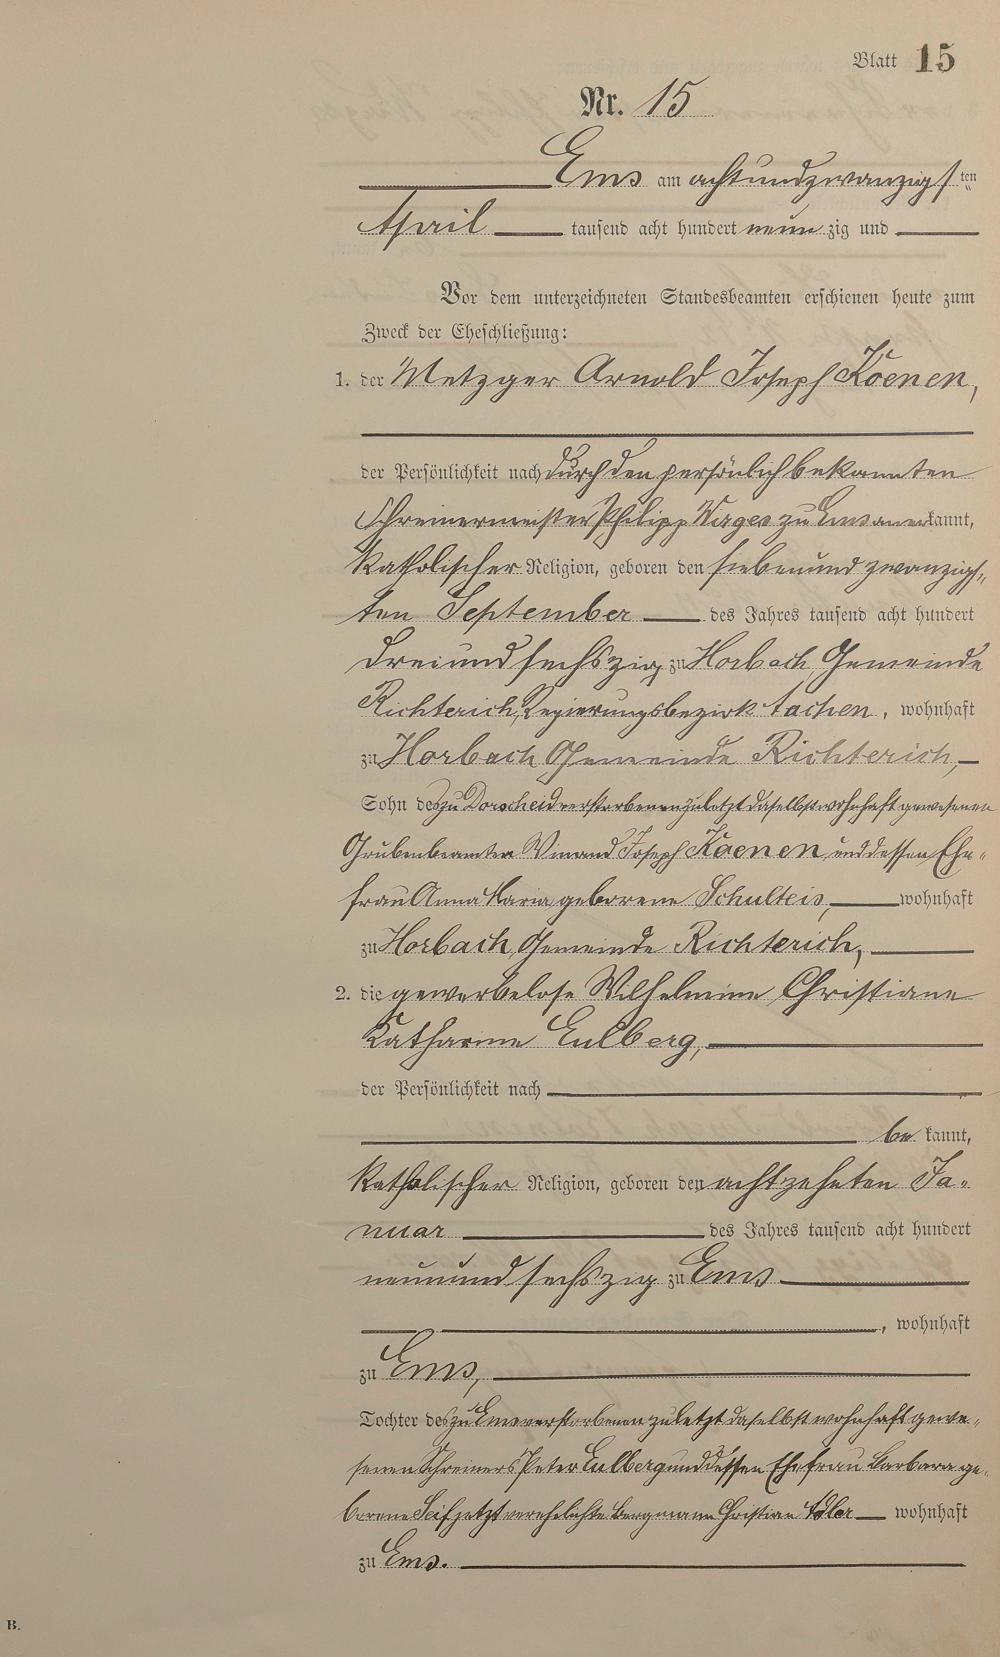 Blatt 15
Nr. 15
Ems am achtundzwanzigsten
April tausend acht hundert neunzig und
Vor dem unterzeichneten Standesbeamten erschienen heute zum
Zweck der Eheschließung:
1. der Metzger Arnold Joseph Koenen,
der Persönlichkeit nach durch den persönlich bekannten
Schreinermeister Philipp Verges zu Ems anerkannt,
katholischer Religion, geboren den siebenund zwanzigs-
ten September des Jahres tausend acht hundert
dreiundsechszig zu Horbach, Gemeinde
Richterich, Regierungsbezirk Aachen, wohnhaft
zu Horbach Gemeinde Richterich,
Sohn des zu Dorscheid verstorbenen zuletzt daselbst wohnhaft gewesenen
Grubenbeamten Winand Joseph Koenen und dessen Ehe-
frau Anna Maria geborene Schulteis, wohnhaft
zu Horbach, Gemeinde Richterich,
2. die gewerbelose Wilhelmine Christiane
Katharine Eulberg,
der Persönlichkeit nach
be kannt,
katholischer Religion, geboren den achtzehnten Ja-
nuar des Jahres tausend acht hundert
neunundsechszig zu Ems
, wohnhaft
zu Ems,
Tochter des zu Ems verstorbenen zuletzt daselbst wohnhaft gewe-
senen Schreiners Peter Eulberg und dessen Ehefrau Barbara ge-
borene Seif jetzt verehelichte Bergmann Christian Adler wohnhaft
zu Ems.
B.